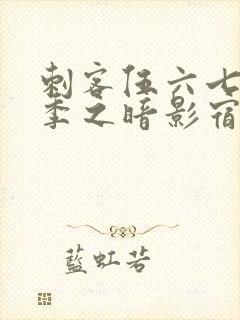 刺客伍六七
季之暗影宿
藍虹若